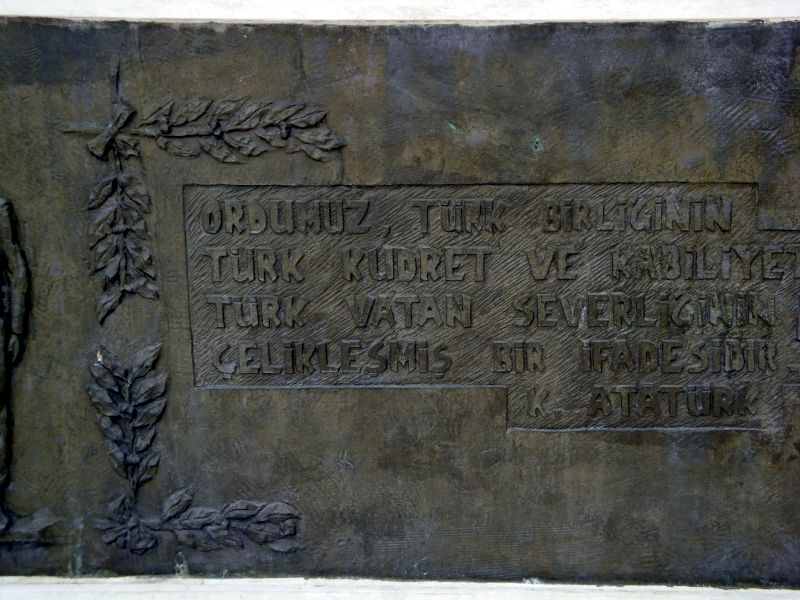 ORDUMUZ, TÜRK BİRLİĞİNİN
TÜRK KUDRET VE KABİLİYET
TÜRK VATAN SEVERLİĞİNİN
ÇELİKLEŞMİŞ BİR İFADESİDİR
K. ATATÜRK